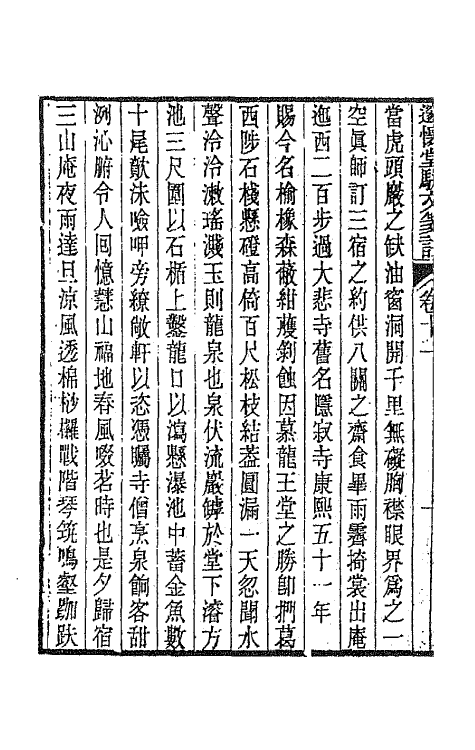 邃懷堂駢文箋註 卷十二
當虎頭巖之缺油窗洞開千里無礙胸襟眼界爲之一
空眞師訂三宿之約供八關之齋食畢雨霽掎裳出庵
迤西二百步過大悲寺舊名隱寂寺康熙五十一年
賜今名榆橡森蔽紺䕶剝蝕因慕龍王堂之勝卽捫葛
西陟石棧懸磴高倚百尺松枝結葢圓漏一天忽聞水
聲泠泠漱瑤濺玉則龍泉也泉伏流巖罅於堂下濬方
池三尺圍以石楯上鑿龍口以瀉懸瀑池中蓄金魚數
十尾歕沫噞呷旁繚敞軒以恣憑矚寺僧烹泉餉客甜
洌沁腑令人回憶慧山福地春風啜茗時也是夕歸宿
三山庵夜雨達旦涼風透棉桫欏戰階琴筑鳴壑跏趺